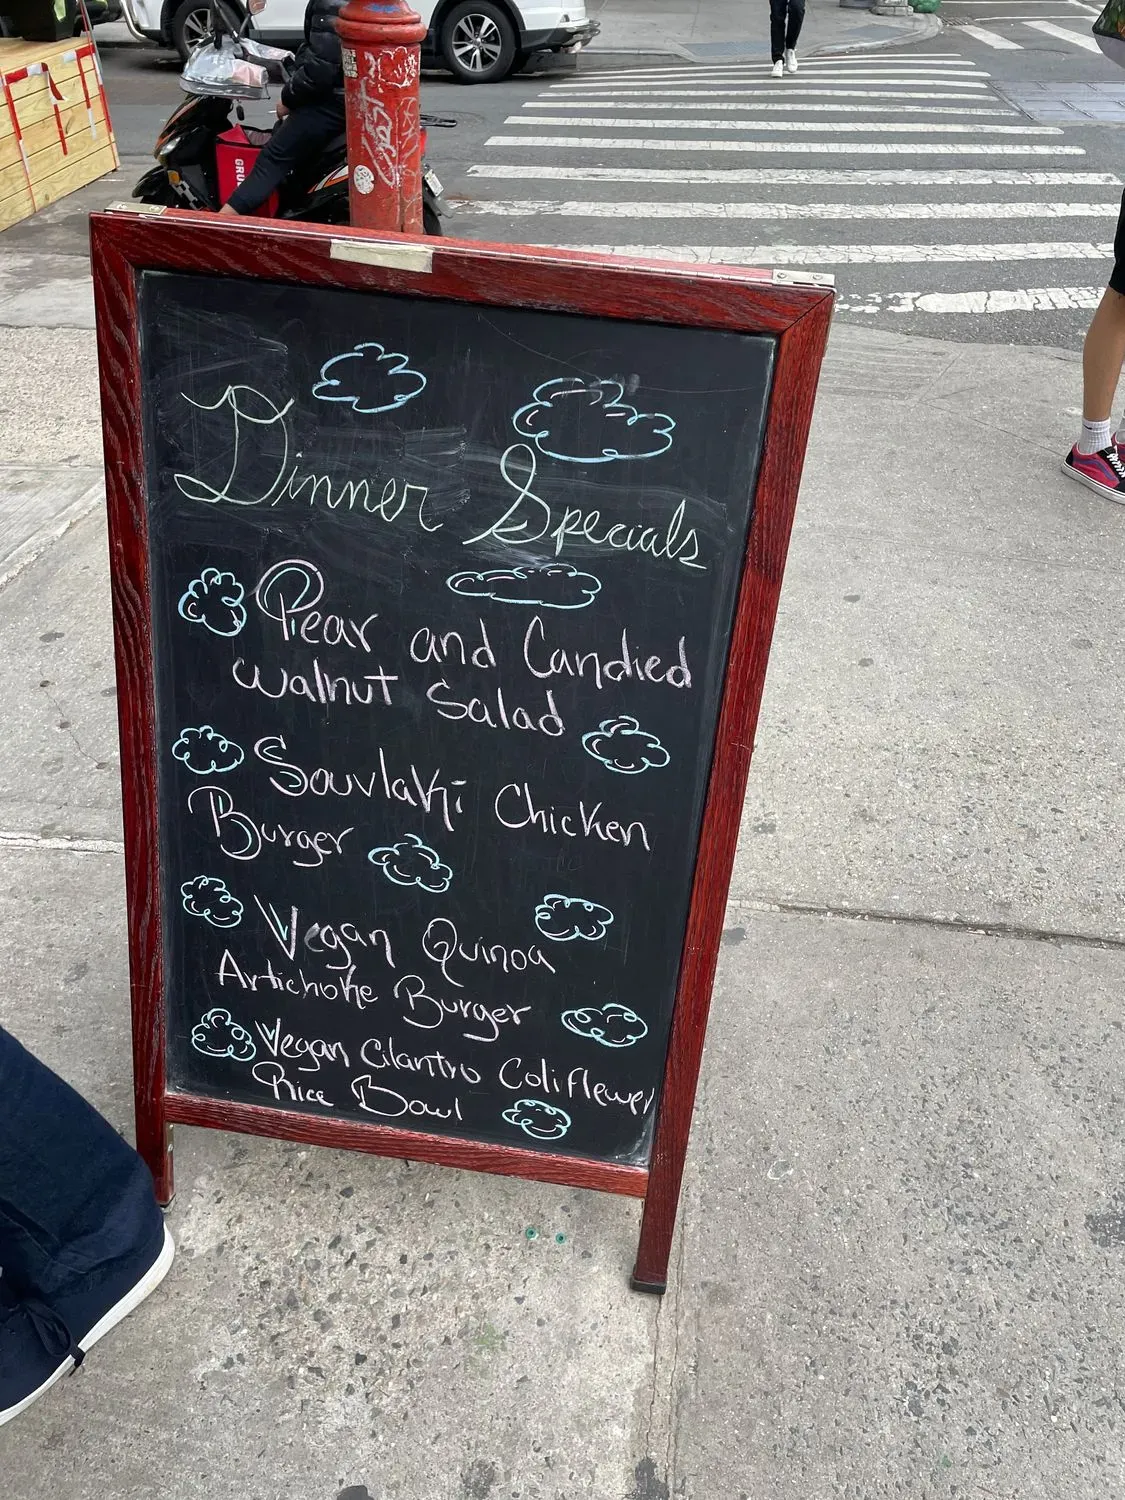 GRU
Dinner Specials
Pear and Candied
Walnut Salad
Souvlaki Chicken
Burger
Vegan Quinoa
Artichoke Burger
Vegan Cilantro Coliflewer
Rice Bowl